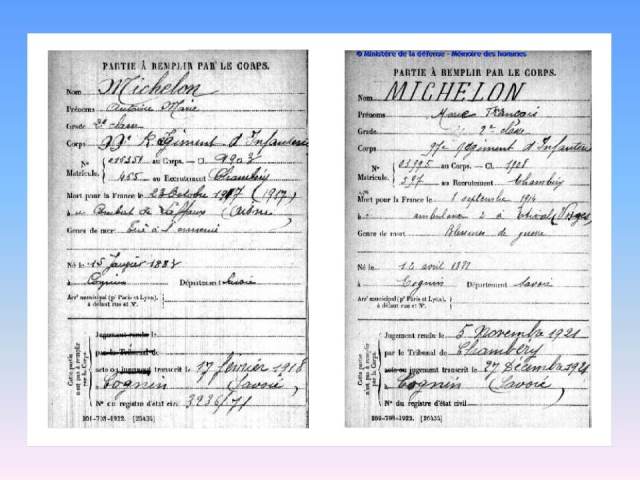 PARTIE À REMPLIR PAR LE CORPS.
Nom Michelon
Prénoms Antoine Marie
Grade 2e classe
Corps 99e Régiment d'Infanterie
N° au Corps. — Cl. 1903
Matricule. 455 au Recrutement Chambéry
Mort pour la France le 23 Octobre 1917 (1917)
à Combat de Laffaux (Aisne)
Genre de mort Tué à l'ennemi
Né le 15 Janvier 1883
à Cognin Département Savoie
Arr' municipal (p' Paris et Lyon),
à défaut rue et N°.
Cette partie
n'est pas à remplir
par le Corps.
Jugement rendu le
par le Tribunal de
acte ou jugement transcrit le 17 février 1918
à Cognin (Savoie)
N° du registre d'état civil 3236/71
101-708-1922. [26434]
© Ministère de la défense - Mémoire des hommes
PARTIE À REMPLIR PAR LE CORPS.
Nom MICHELON
Prénoms Marie François
Grade 2me classe
Corps 97e régiment d'Infanterie
N° 03995 au Corps. — Cl. 1908
Matricule. 597 au Recrutement Chambéry
Mort pour la France le 8 septembre 1914
à ambulance 2 à Etival (Vosges)
Genre de mort Blessures de guerre
Né le 14 avril
à Cognin Département Savoie
Arr' municipal (p' Paris et Lyon),
à défaut rue et N°.
Cette partie
n'est pas à remplir
par le Corps.
Jugement rendu le 5 Novembre 1921
par le Tribunal de Chambéry
acte ou jugement transcrit le 27 Décembre 1921
à Cognin (Savoie)
N° du registre d'état civil
101-708-1922. [26434]